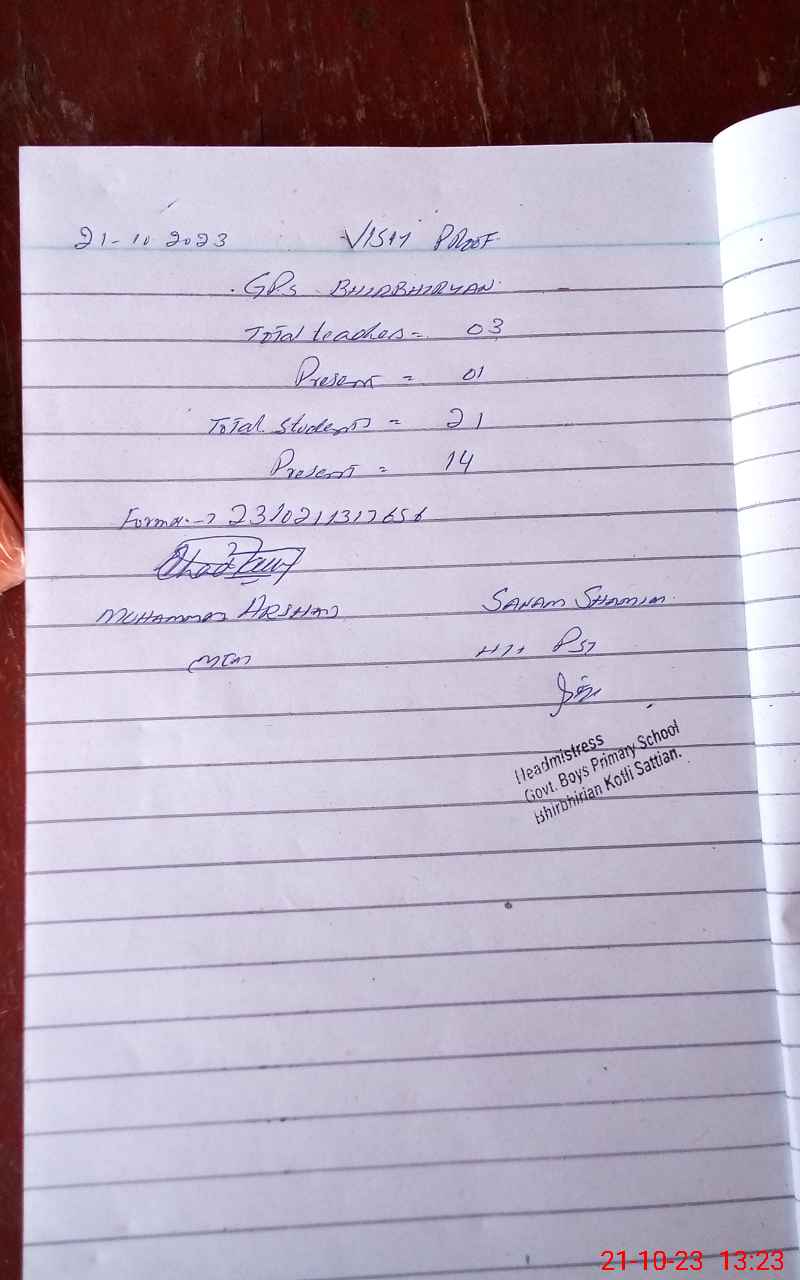 21-10-2023 VISIT PROOF
GPS BHIRBHIRYAN
Total teachers = 03
Present = 01
Total students = 21
Present = 14
MUHAMMAD ARSHAD SANAM SHAMIM
PST
Headmistress
Govt. Boys Primary School
Bhirbhirian Kotli Sattian.
21-10-23 13:23